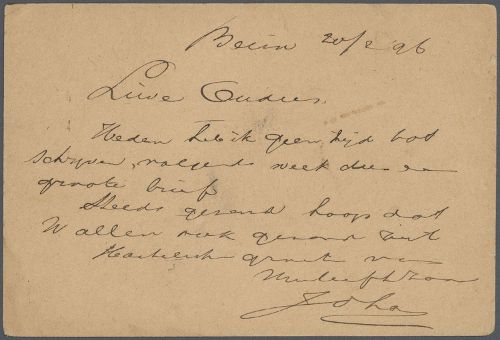 Beira 20/2 96
Lieve Ouders.
Heden heb ik geen tijd tot
schrijven, volgende week dus een
groote brief
Steeds gezond hoop dat
U allen ook gezond zijt
Hartelijk groet van
Uw liefh Zoon